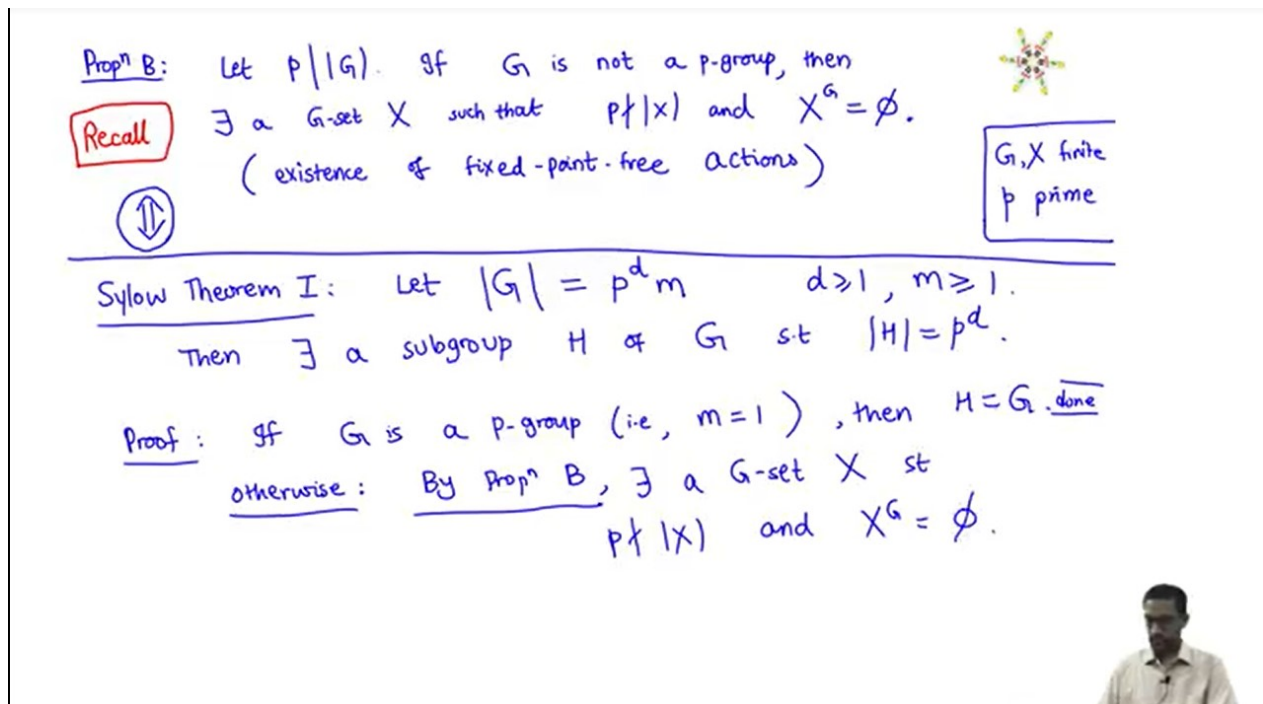 Propⁿ B: Let p | |G|. If G is not a p-group, then
Recall
∃ a G-set X such that p∤|X| and Xᴳ = ∅.
(existence of fixed-point-free actions)
G,X finite
p prime
⇕
Sylow Theorem I: Let |G| = pᵈm d≥1, m≥1.
Then ∃ a subgroup H of G s.t |H| = pᵈ.
Proof: If G is a p-group (i.e, m=1), then H=G. done
otherwise: By Propⁿ B, ∃ a G-set X st
p∤|X| and Xᴳ = ∅.